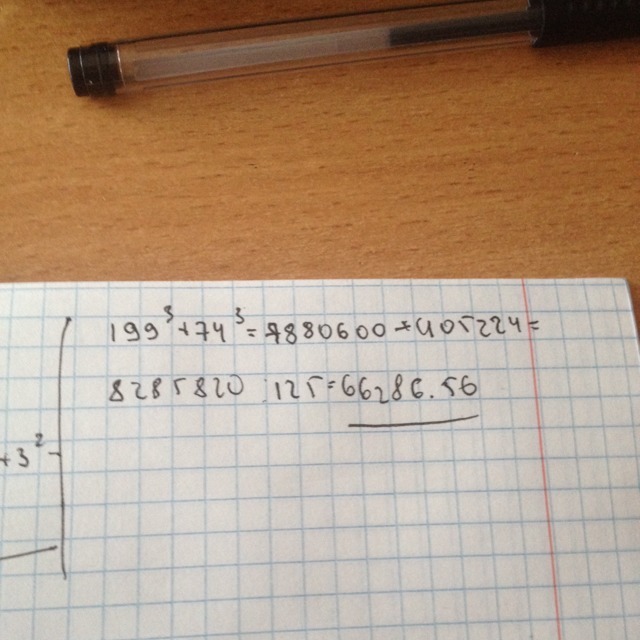 199³+74³=7880600+405224=
8285820:125=66286.56
+3²-